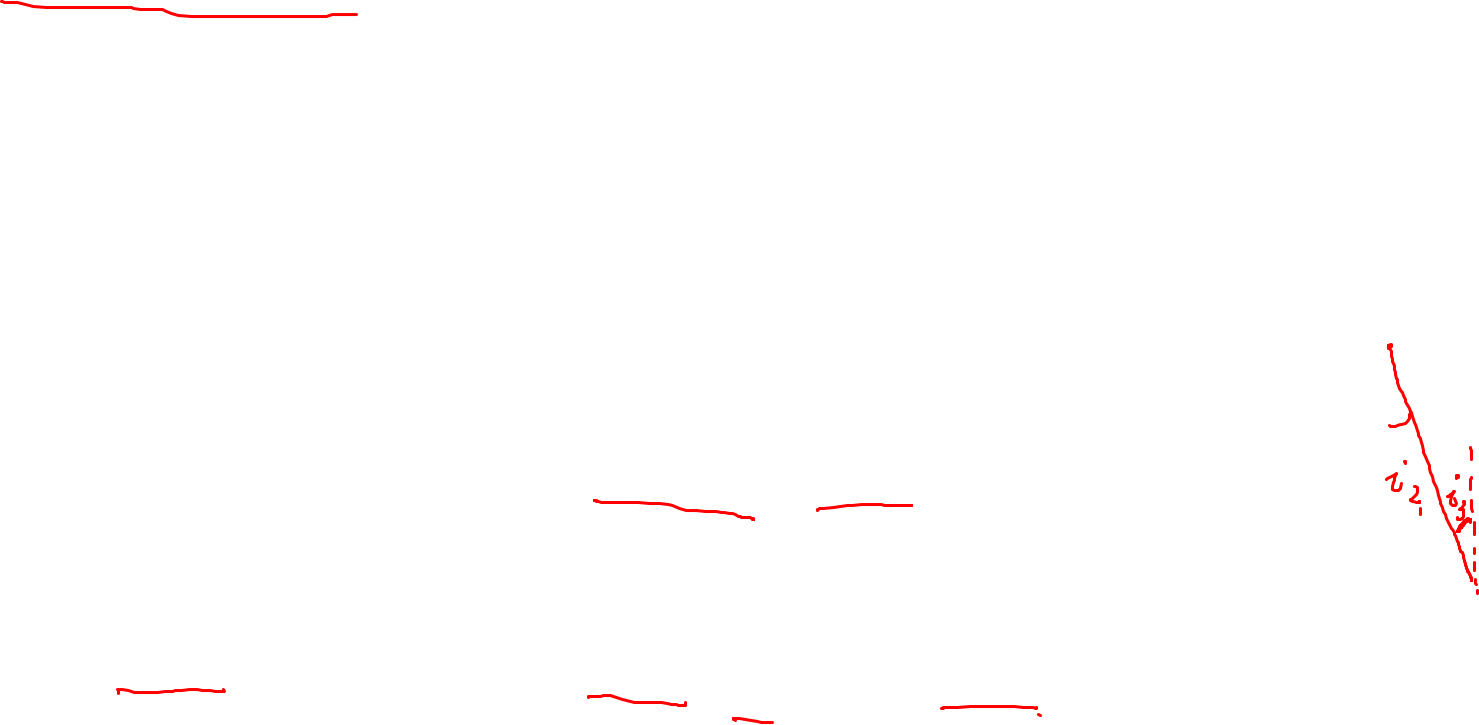 i₂ i₃